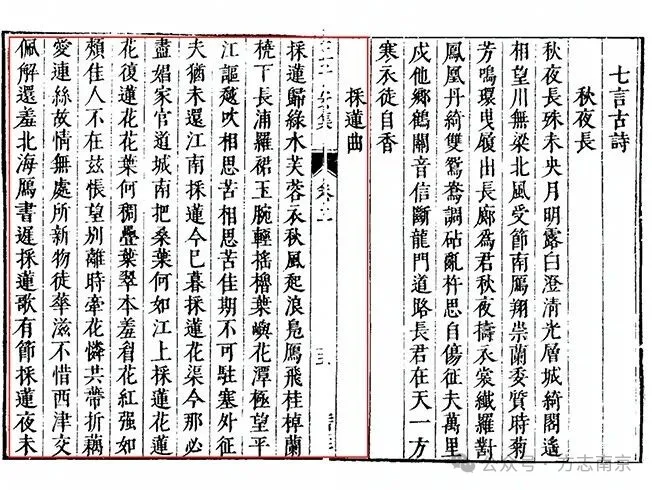 七言古詩
秋夜長
秋夜長殊未央月明露白澄清光層城綺閣遙
相望川無梁北風受節南鴈翔崇蘭委質時菊
芳鳴環曳履出長廊爲君秋夜擣衣裳纖羅對
鳳凰丹綺雙鴛鴦調砧亂杵思自傷征夫萬里
戍他鄉鶴關音信斷龍門道路長君在天一方
寒衣徒自香
集 卷二
採蓮曲
採蓮歸綠水芙蓉衣秋風起浪鳧鴈飛桂棹蘭
橈下長浦羅裙玉腕輕搖櫓葉嶼花潭極望平
江謳越吹相思苦相思苦佳期不可駐塞外征
夫猶未還江南採蓮今已暮採蓮花渠今那必
盡娼家官道城南把桑葉何如江上採蓮花蓮
花復蓮花花葉何稠疊葉翠本羞眉花紅強如
頰佳人不在茲悵望別離時牽花憐共帶折藕
愛連絲故情無處所新物徒華滋不惜西津交
佩解還羞北海鴈書遲採蓮歌有節採蓮夜未
公众号 · 方志南京